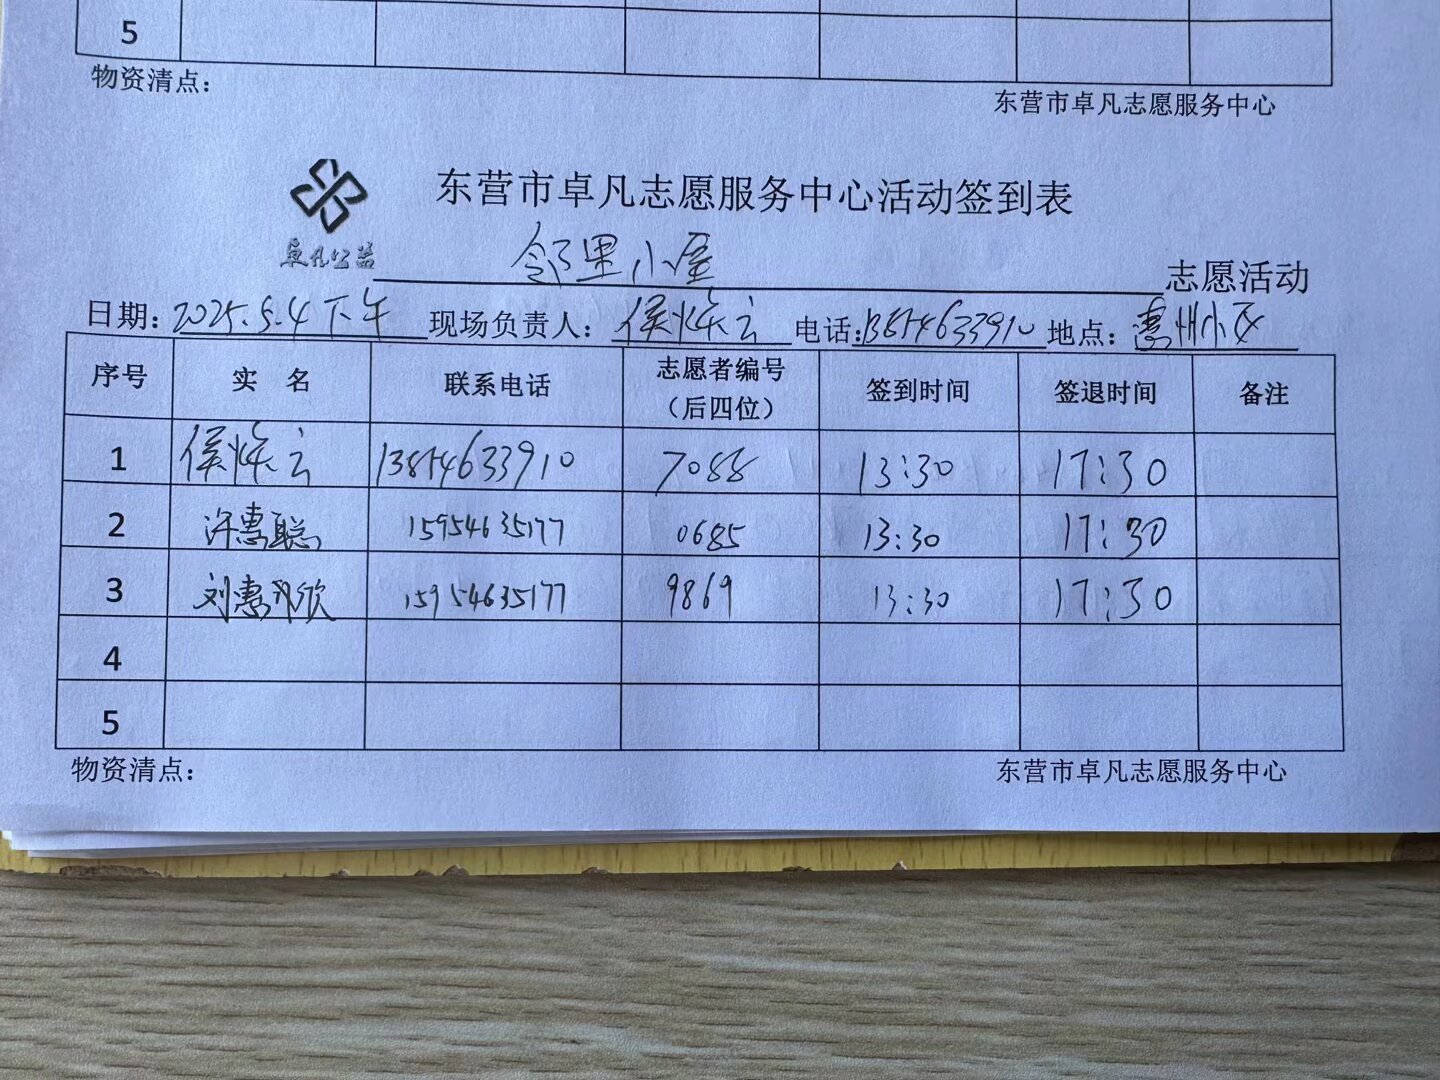 5
物资清点：
东营市卓凡志愿服务中心
卓凡公益
东营市卓凡志愿服务中心活动签到表
邻里小屋 志愿活动
日期：2025.5.4下午 现场负责人：侯焕云 电话：13854633910 地点：惠州小区
序号 实 名 联系电话 志愿者编号（后四位） 签到时间 签退时间 备注
1 侯焕云 13854633910 7088 13:30 17:30
2 许惠聪 15954635177 0685 13:30 17:30
3 刘惠 15954635177 9869 13:30 17:30
4
5
物资清点：
东营市卓凡志愿服务中心